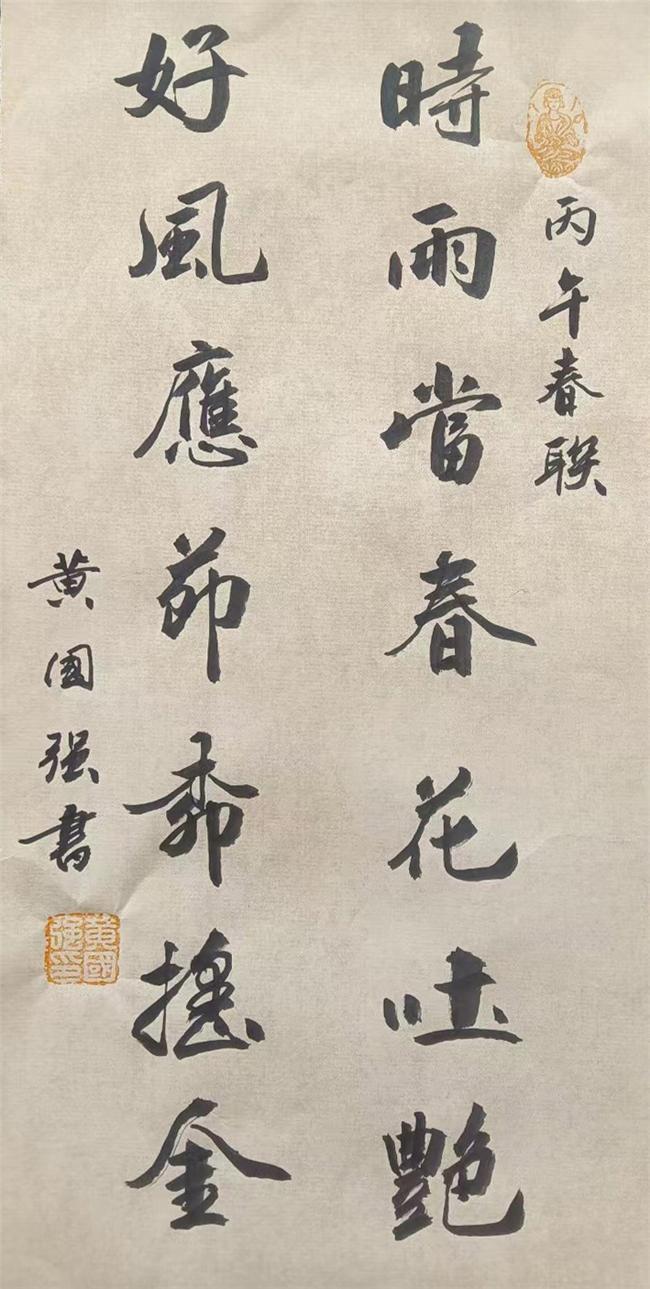 丙午春联
時雨當春花吐艷
好風應節桺搖金
黄國强書
黄國强印